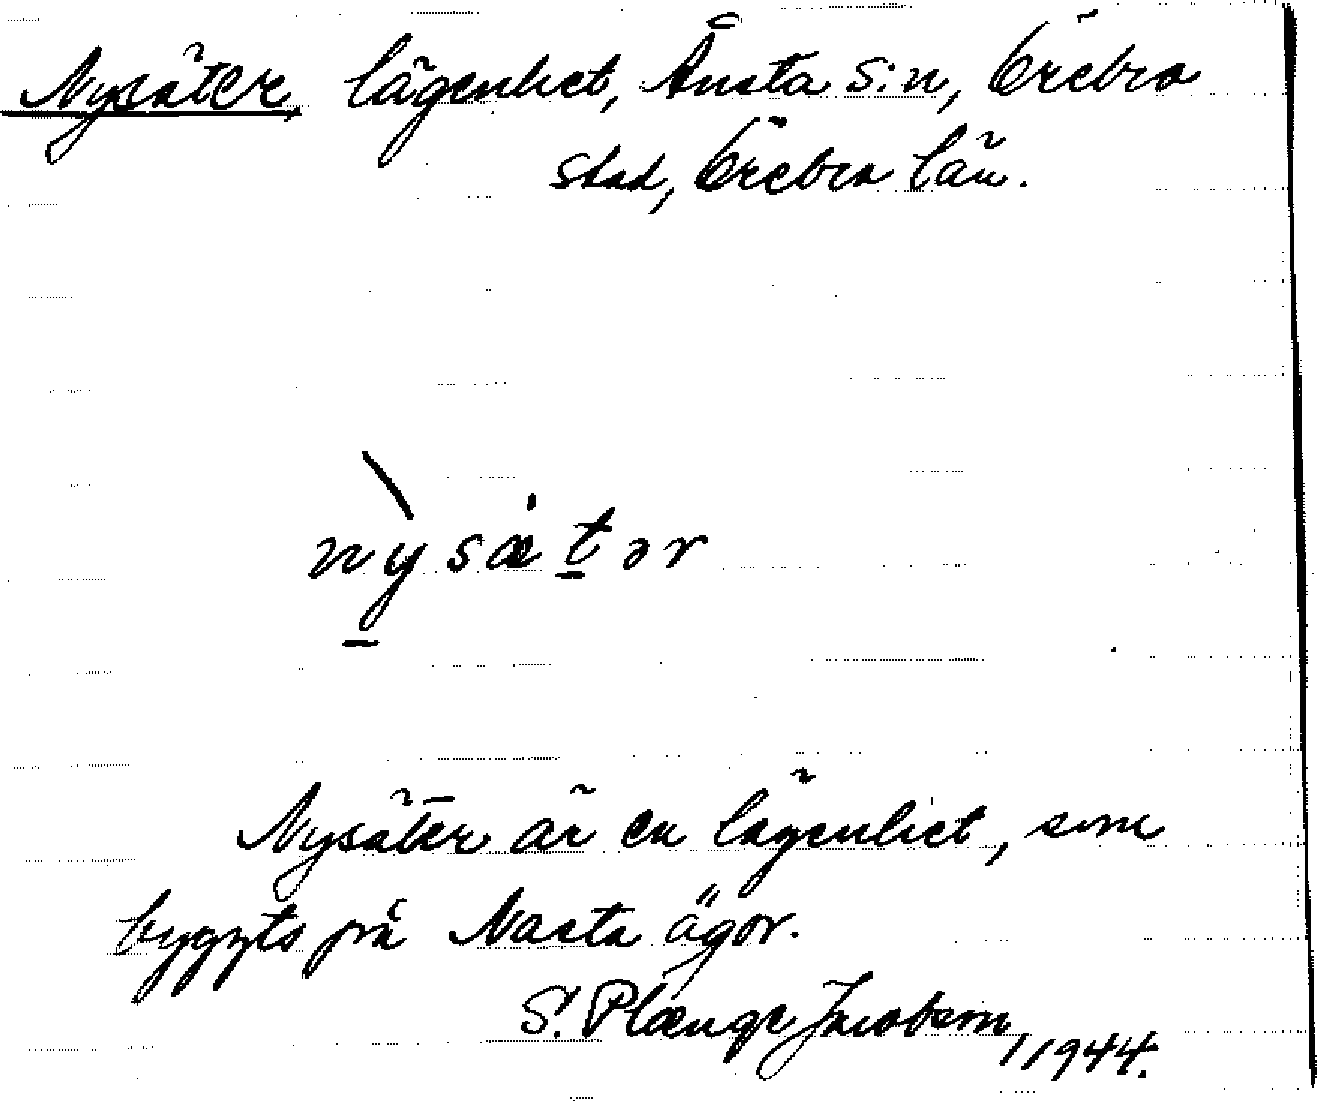 Nysäter, lägenhet, Ånsta s:n, Örebro
stad, Örebro län.
nysætər
Nysäter är en lägenhet, som
byggts på Nasta ägor.
S. Plænge Jacobson, 1944.